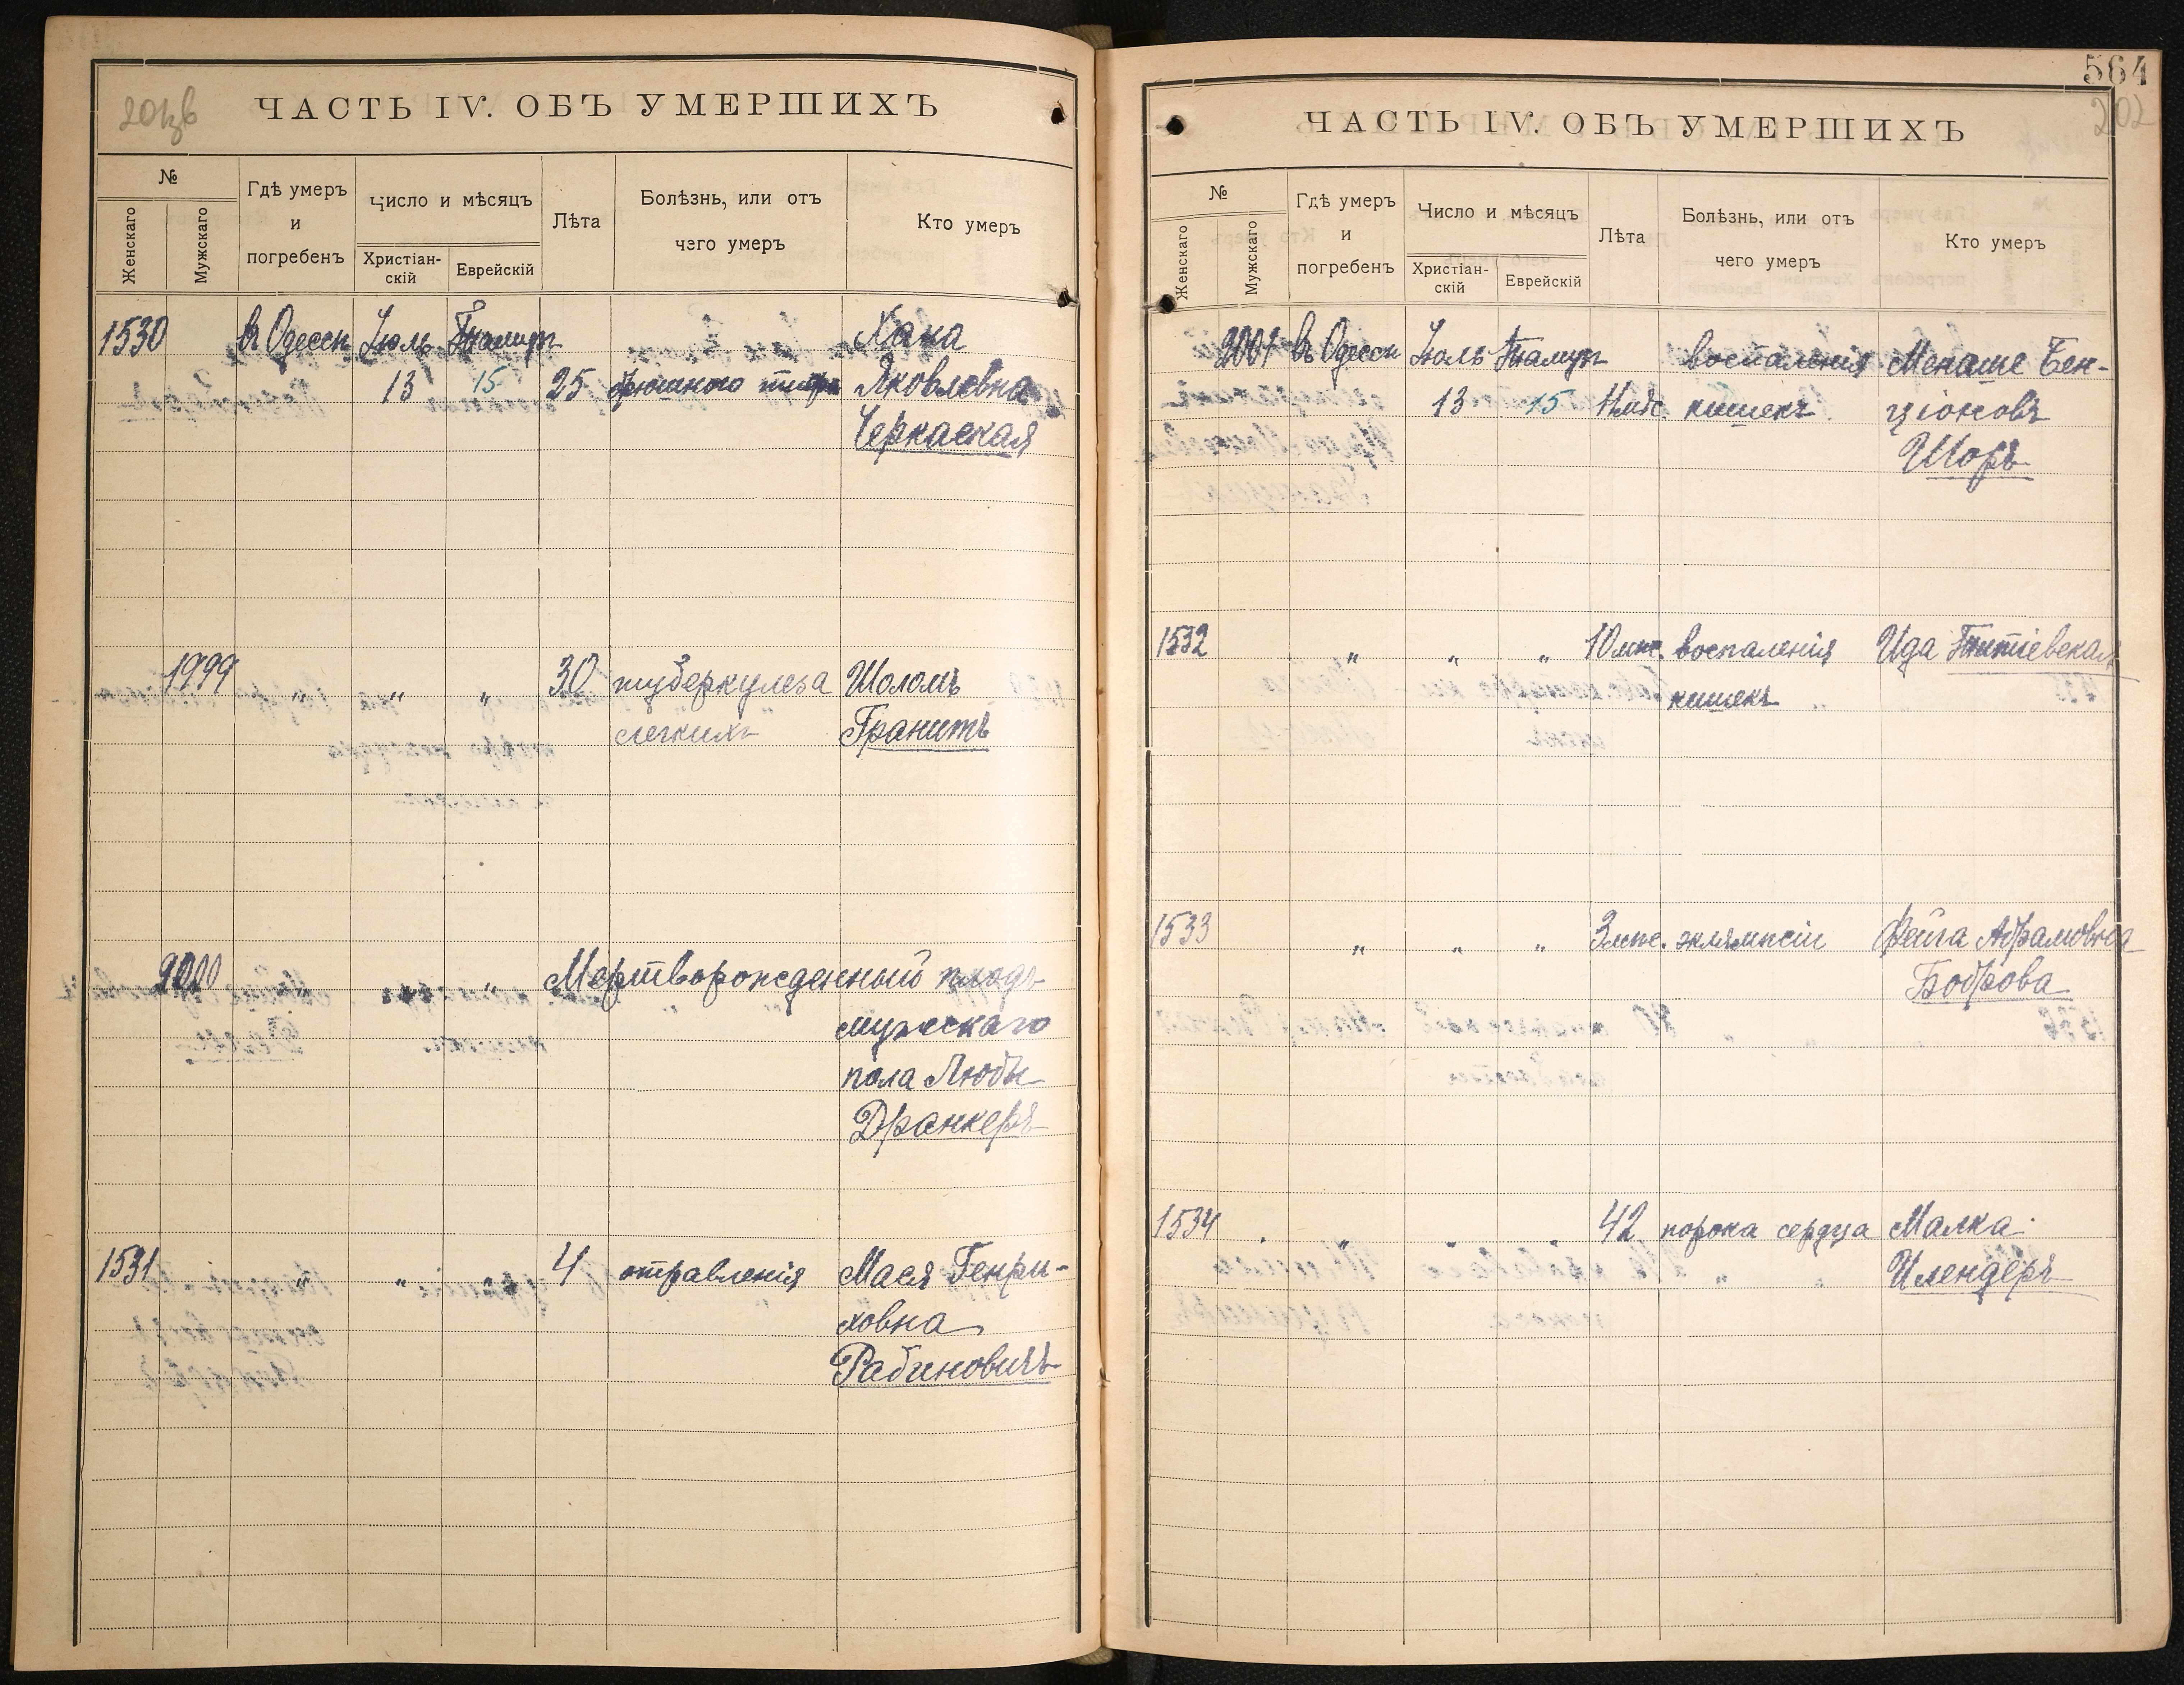 201 об
ЧАСТЬ IV. ОБЪ УМЕРШИХЪ
№
Женскаго
Мужскаго
Гдѣ умеръ
и
погребенъ
Число и мѣсяцъ
Христіан-
скій
Еврейскій
Лѣта
Болѣзнь, или отъ
чего умеръ
Кто умеръ
1530 въ Одессѣ Іюль Тамузъ Хана
13 15 25 брюшного тифа Яковлевна
Черкаская
1999 " " " 30 туберкулеза Шоломъ
легкихъ Гранитъ
2000 " " " Мертворожденный плодъ
мужскаго
пола Любы
Дранкеръ
1531 " " " 4 отравленія Мася Генри-
ховна
Рабиновичъ
564
202
ЧАСТЬ IV. ОБЪ УМЕРШИХЪ
№
Женскаго
Мужскаго
Гдѣ умеръ
и
погребенъ
Число и мѣсяцъ
Христіан-
скій
Еврейскій
Лѣта
Болѣзнь, или отъ
чего умеръ
Кто умеръ
2001 въ Одессѣ Іюль Тамузъ воспаленія Менаше Бен-
13 15 11 мѣс. кишекъ ціоновъ
Шоръ
1532 " " " 10 мѣс. воспаленія Ида
кишекъ
1533 " " " 3 мѣс. эклямпсіи Фейга Абрамовна
Боброва
1534 " " " 42 порока сердца Малка
Шлендеръ